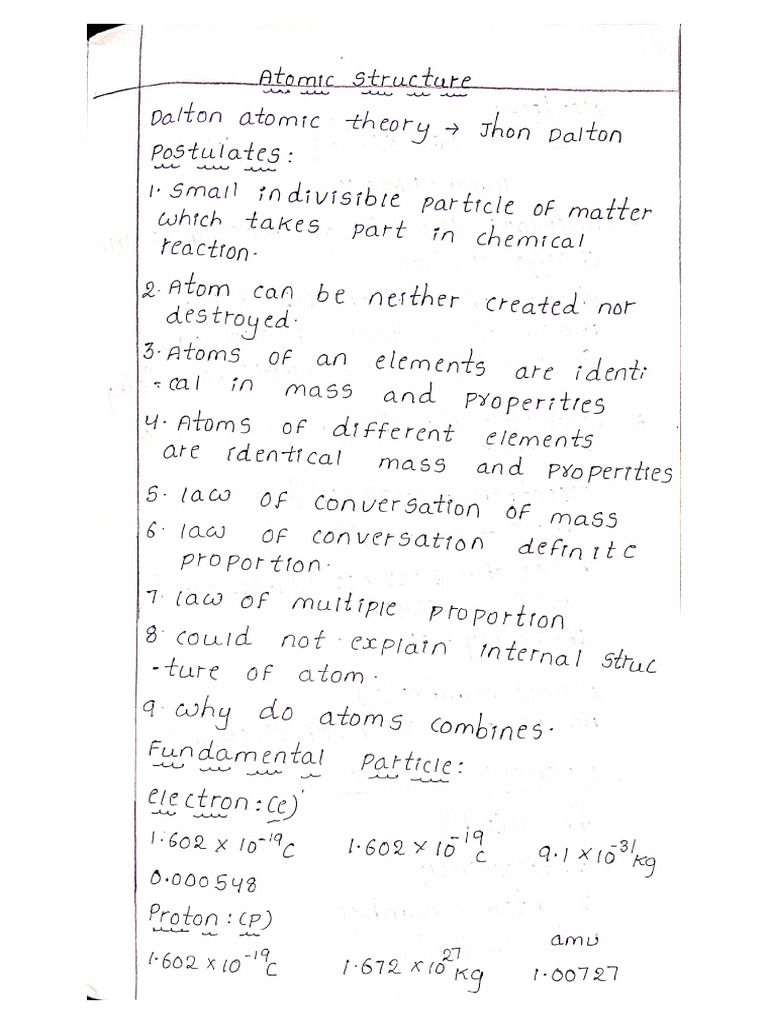 Atomic structure
Dalton atomic theory → Jhon Dalton
Postulates:
1. Small indivisible particle of matter
which takes part in chemical
reaction.
2. Atom can be neither created nor
destroyed.
3. Atoms of an elements are identi
-cal in mass and properities
4. Atoms of different elements
are identical mass and properties
5. law of conversation of mass
6. law of conversation definite
proportion.
7. law of multiple proportion
8 could not explain internal struc
-ture of atom.
9. why do atoms combines.
Fundamental particle:
electron: (e)
1.602 × 10⁻¹⁹C 1.602 × 10⁻¹⁹C 9.1 × 10⁻³¹kg
0.000548
Proton: (p)
amu
1.602 × 10⁻¹⁹C 1.672 × 10²⁷kg 1.00727